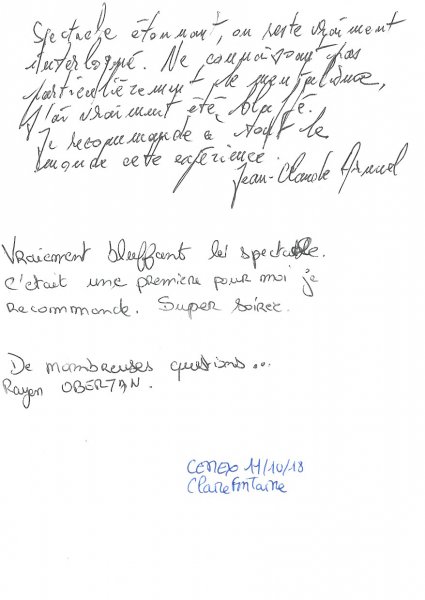 Spectacle étonnant, on reste vraiment
interloqué. Ne connaissant pas
particulièrement le mentalisme,
J'ai vraiment été bluffé.
Je recommande à tout le
monde cette expérience.
Jean-Claude
Vraiement bluffant le spectacle.
C'était une première pour moi je
recommande. Super soirée.
De nombreuses questions...
Rayen OBERTAN.
CEMEX 11/10/18
Clairefontaine